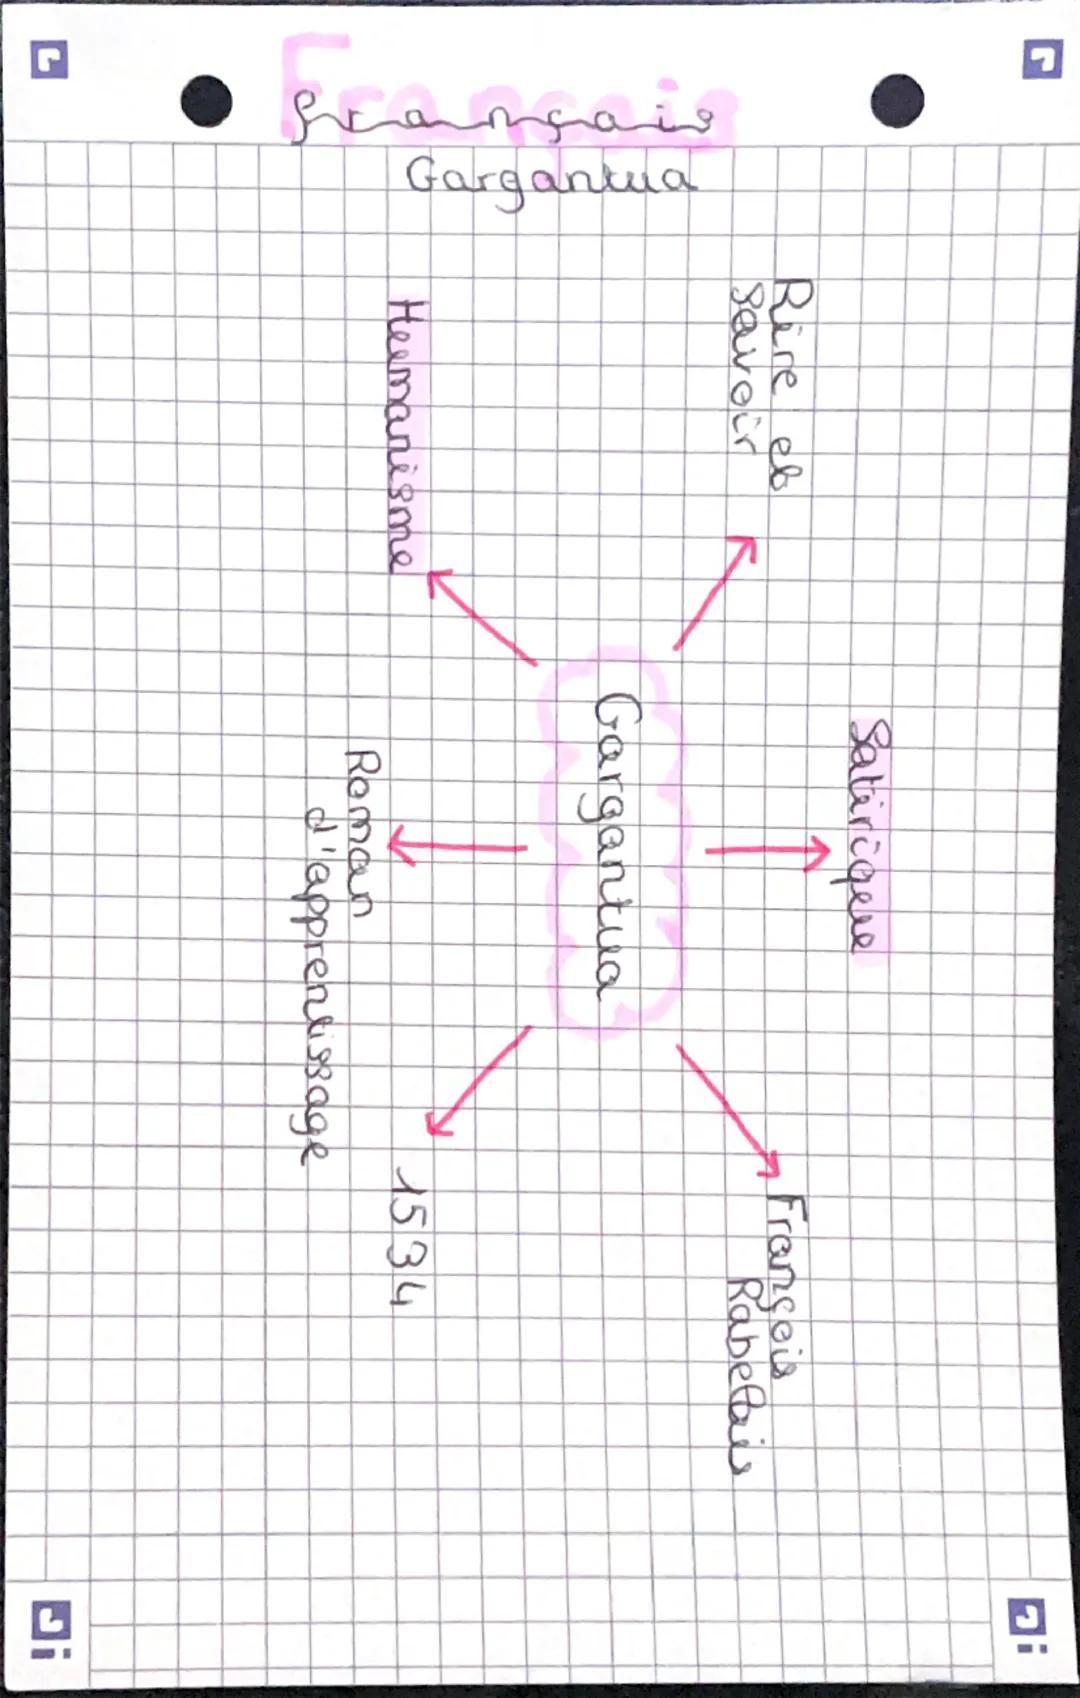 Français
français
Gargantua
Rire et
savoir
Satirique
François
Rabelais
Gargantua
Humanisme
Roman
d'apprentissage
1534